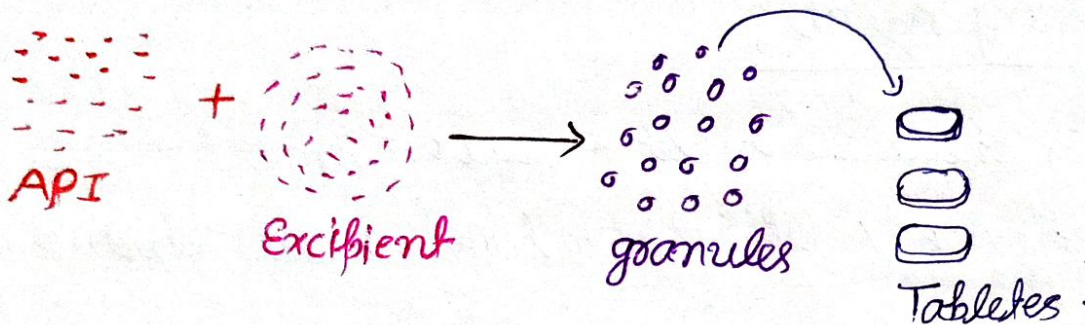 +
API
Excipient
granules
Tabletes.